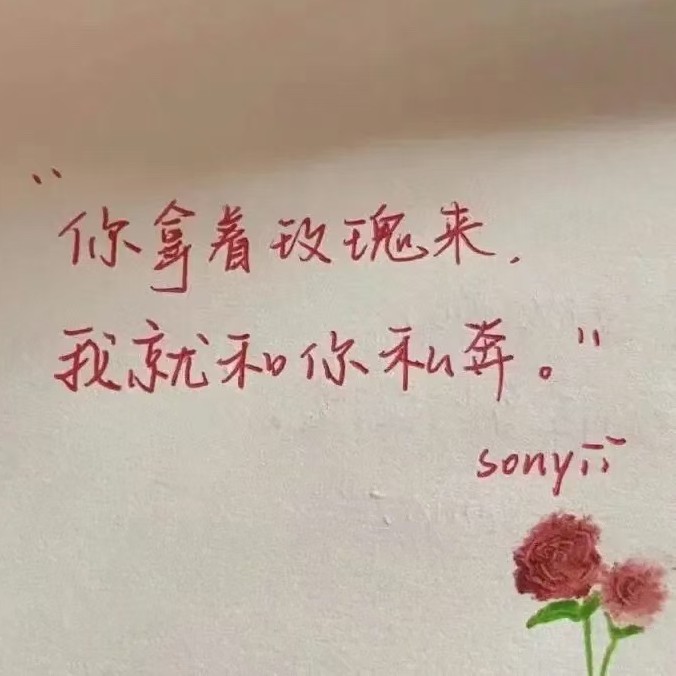 "你拿着玫瑰来,
我就和你私奔。"
sonyii